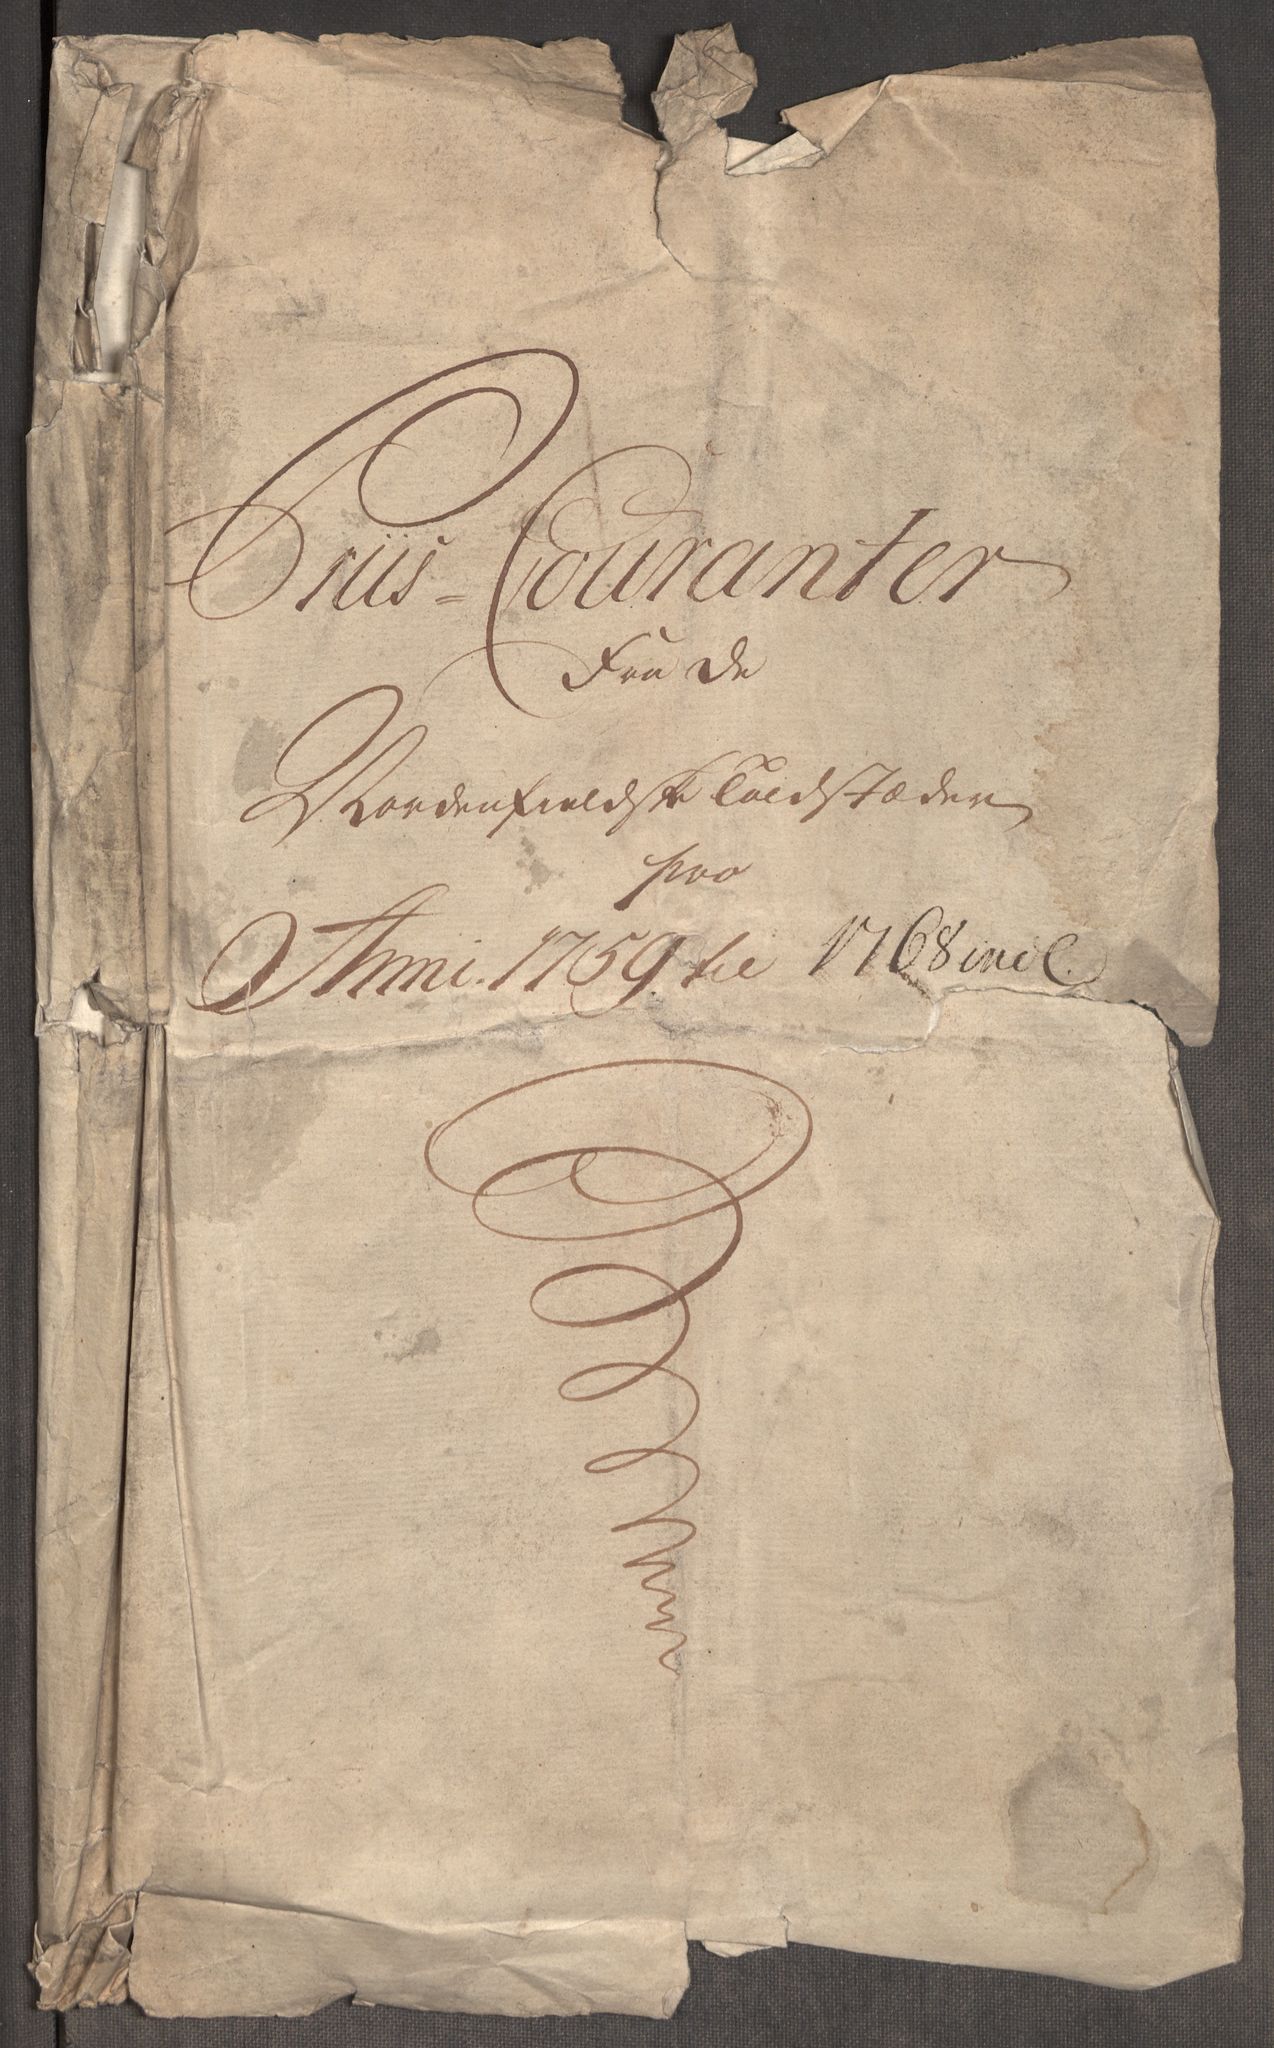 Priis-Couranter
Fra de
Nordenfieldske Toldstæder
pro
Anni. 1759 til 1768 incl.